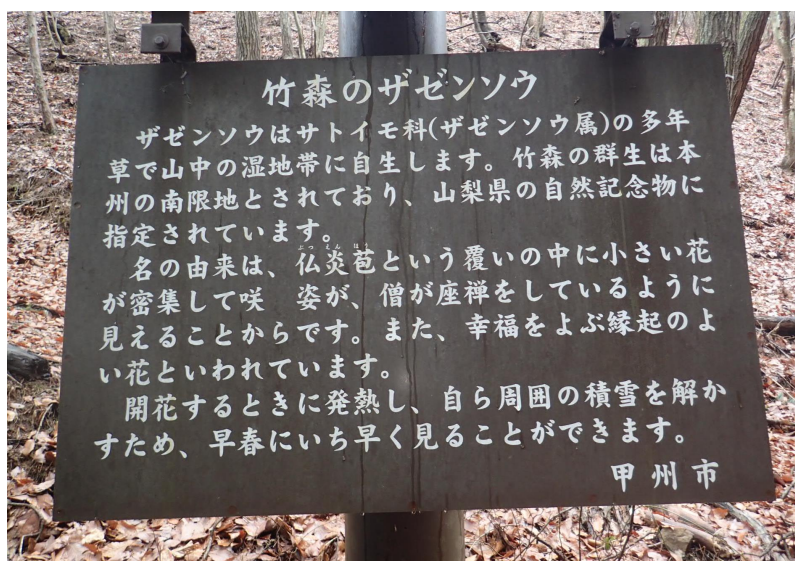 竹森のザゼンソウ
ザゼンソウはサトイモ科(ザゼンソウ属)の多年
草で山中の湿地帯に自生します。竹森の群生は本
州の南限地とされており、山梨県の自然記念物に
指定されています。
名の由来は、仏炎苞という覆いの中に小さい花
が密集して咲 姿が、僧が座禅をしているように
見えることからです。また、幸福をよぶ縁起のよ
い花といわれています。
開花するときに発熱し、自ら周囲の積雪を解か
すため、早春にいち早く見ることができます。
甲州市